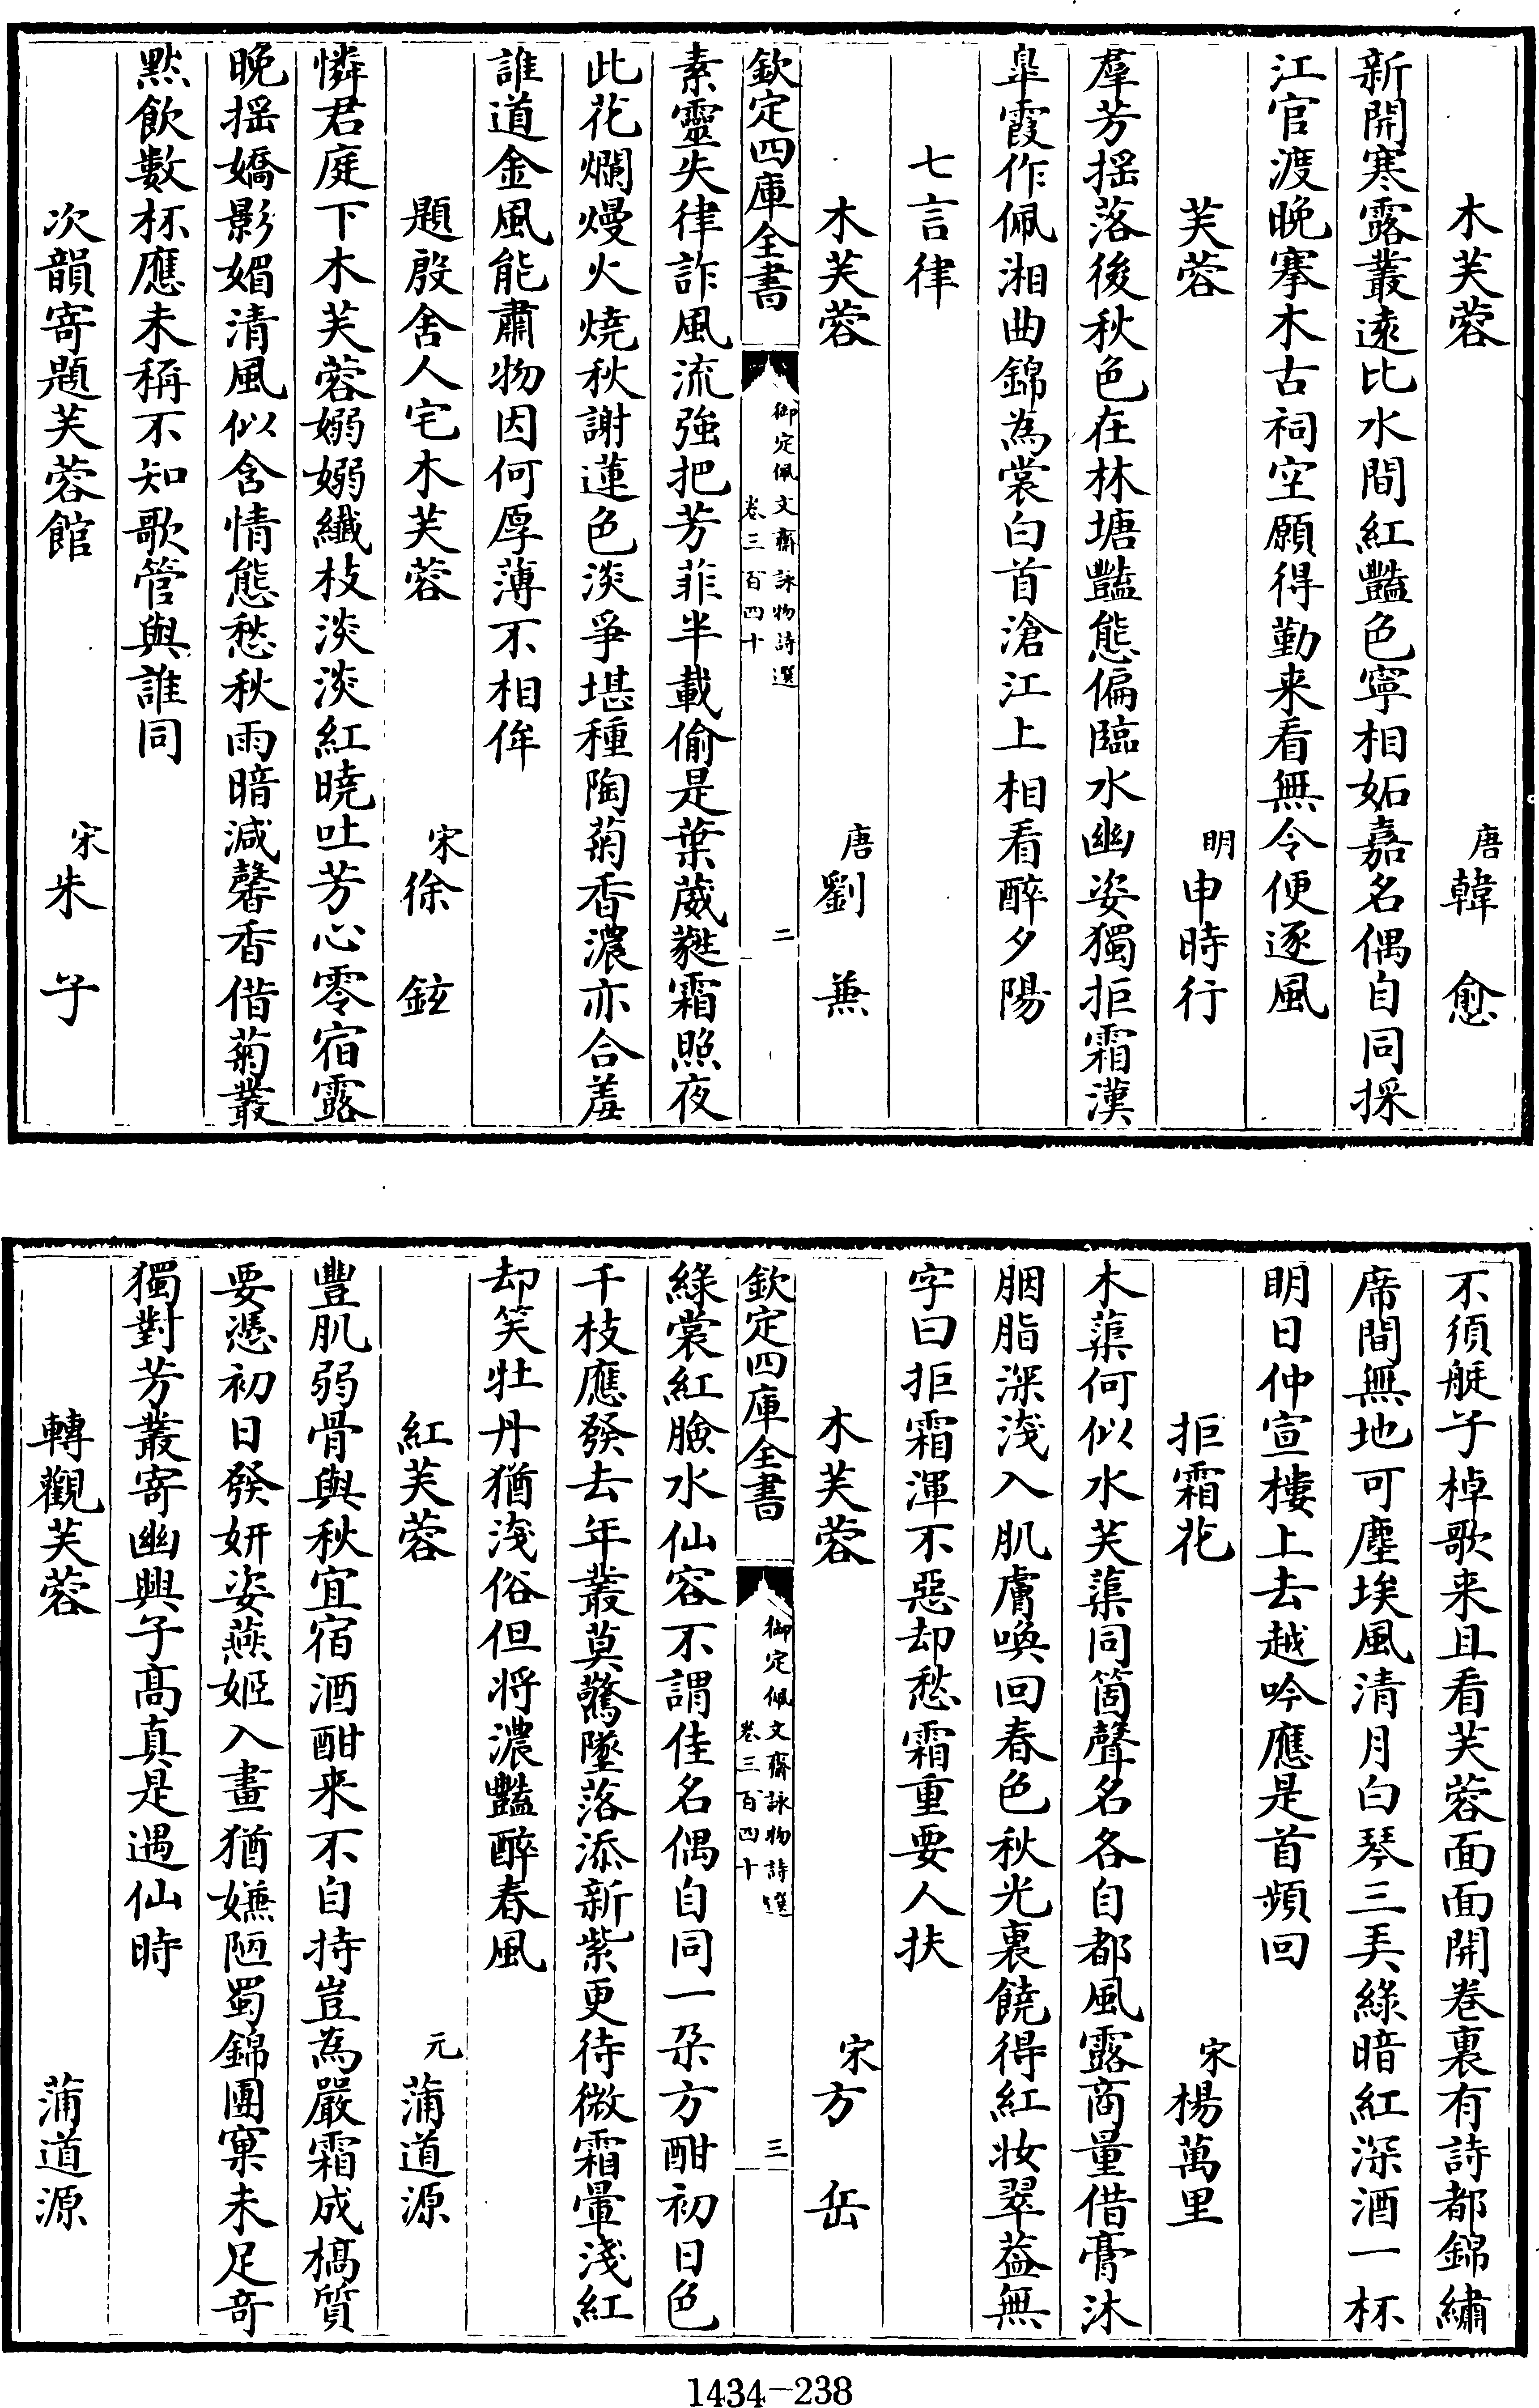 木芙蓉　唐韓愈
新開寒露叢遠比水間紅豔色寧相妬嘉名偶自同採
江官渡晚搴木古祠空願得勤来看無令便逐風
芙蓉　明申時行
羣芳揺落後秋色在林塘豔態偏臨水幽姿獨拒霜漢
臯霞作佩湘曲錦為裳白首滄江上相看醉夕陽
七言律
木芙蓉　唐劉兼
欽定四庫全書　御定佩文齋詠物詩選　卷三百四十　二
素靈失律詐風流強把芳菲半載偷是葉葳蕤霜照夜
此花爛熳火燒秋謝蓮色淡爭堪種陶菊香濃亦合羞
誰道金風能肅物因何厚薄不相侔
題殷舍人宅木芙蓉　宋徐鉉
憐君庭下木芙蓉嫋嫋纖枝淡淡紅曉吐芳心零宿露
晚揺嬌影媚清風似含情態愁秋雨暗減馨香借菊叢
黙飲數杯應未稱不知歌管與誰同
次韻寄題芙蓉館　宋朱子
不須艇子棹歌来且看芙蓉面面開卷裏有詩都錦繡
席間無地可塵埃風清月白琴三弄綠暗紅深酒一杯
明日仲宣樓上去越吟應是首頻回
拒霜花　宋楊萬里
木蕖何似水芙蕖同箇聲名各自都風露商量借膏沐
胭脂深淺入肌膚喚回春色秋光裏饒得紅妝翠葢無
字曰拒霜渾不惡却愁霜重要人扶
木芙蓉　宋方岳
欽定四庫全書　御定佩文齋詠物詩選　卷三百四十　三
綠裳紅臉水仙容不謂佳名偶自同一朶方酣初日色
千枝應發去年叢莫驚墜落添新紫更待微霜暈淺紅
却笑牡丹猶淺俗但将濃豔醉春風
紅芙蓉　元蒲道源
豐肌弱骨與秋宜宿酒酣来不自持豈為嚴霜成槁質
要憑初日發妍姿燕姬入畫猶嫌陋蜀錦團窠未足竒
獨對芳叢寄幽興子髙真是遇仙時
轉觀芙蓉　蒲道源
1434-238